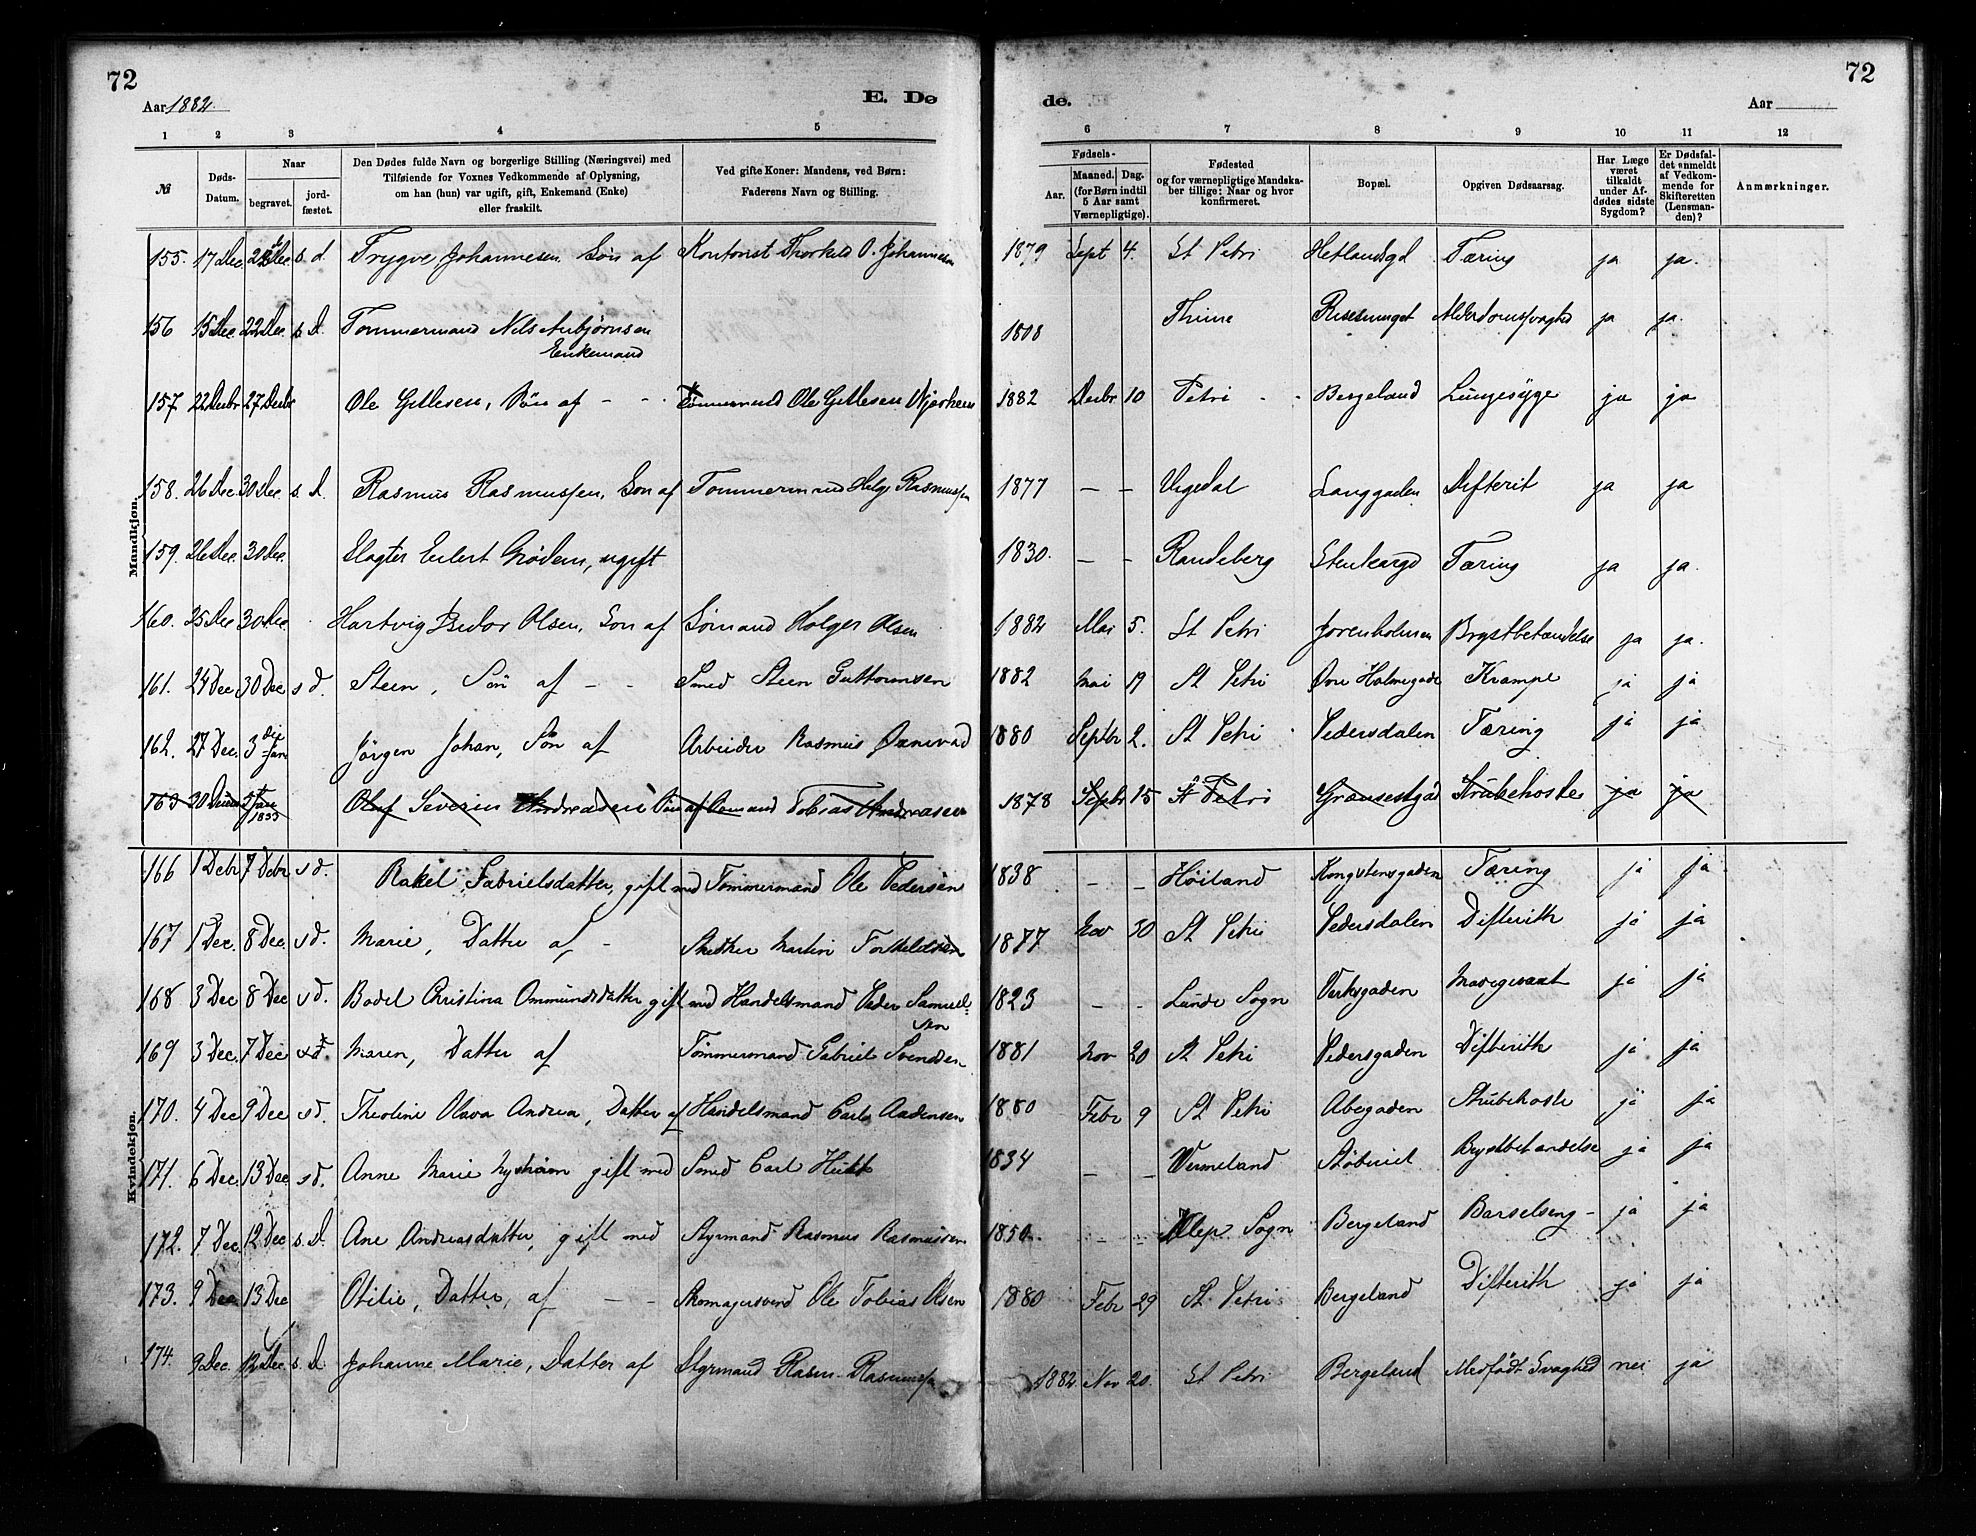 72
Aar 1882.
E. Dø
de.
Aar
72
1 2 3 4 5 6 7 8 9 10 11 12
№
Døds-Datum.
Naar
begravet.
jord-fæstet.
Den Dødes fulde Navn og borgerlige Stilling (Næringsvei) med
Tilføiende for Voxnes Vedkommende af Oplysning,
om han (hun) var ugift, gift, Enkemand (Enke)
eller fraskilt.
Ved gifte Koner: Mandens, ved Børn:
Faderens Navn og Stilling.
Fødsels-
Aar.
Maaned. Dag.
(for Børn indtil
5 Aar samt
Værnepligtige).
Fødested
og for værnepligtige Mandska-
ber tillige: Naar og hvor
konfirmeret.
Bopæl.
Opgiven Dødsaarsag.
Har Læge
været
tilkaldt
under Af-
dødes sidste
Sygdom?
Er Dødsfal-
det anmeldt
af Vedkom-
mende for
Skifteretten
(Lensman-
den)?
Anmærkninger.
Mandkjøn.
155. 17 Dec. 22 Dec. s. d. Trygve Johannesen, Søn af Kontorist Thorkild O. Johannesen 1879 Sept 4. St Petri Hetlandsgd Tæring ja ja.
156 15 Dec. 22 Dec. s. d. Tømmermand Nils Asbjørnsen 1808 Thime Alderdomssvaghed ja ja.
Enkemand
157 22 Decbr 27 Decbr Ole Gitlesen, Søn af - - Tømmermand Ole Gitlesen 1882 Decbr 10 Petri - - Bergeland Lungesyge ja ja
158. 26 Dec. 30 Dec. s. d. Rasmus Rasmussen, Søn af Tømmermand Helge Rasmussen 1877 - - Vigedal Langgaden Difterit ja ja
159. 26 Dec. 30 Dec. Slagter Eilert Grødem, ugift 1830. - - Randeberg Stenkargd Tæring ja ja.
160. 25 Dec 30 Dec. Hartvig Olsen, Søn af Sømand Holger Olsen 1882 Mai 5. St Petri Jorenholmen Brystbetændelse ja ja.
161. 24 Dec. 30 Dec s d. Steen, Søn af - - Smed Steen Guttormsen 1882 Mai 19 St Petri Øvre Holmegade Krampe ja ja
162. 27 Dec. 3 Jan Jørgen Johan, Søn af Arbeider Rasmus 1880 Septbr 2. St Petri Pedersdalen Tæring ja ja
163 20 2 Jan 1883 Oluf Severin Andreasen Søn af Sømand Tobias Andreasen 1878 Septbr 15 St Petri Strubehoste ja ja
Kvindekjøn.
166 1 Decbr 7 Decbr s d. Rakel Gabrielsdatter, gift med Tømmermand Ole Pedersen 1838 - - Høiland Kongstensgaden Tæring ja ja
167 1 Dec. 8 Dec. s d. Marie, Datter af - Snedker Martin Torkeldsen 1877 Nov 30 St Petri Pedersdalen Difterith ja ja
168 3 Dec 8 Dec s d. Bodel Christina Ommundsdatter gift med Handelsmand Peder Samuel- 1823 - - Lunde Sogn Verksgaden ja ja
sen
169 3 Dec. 7 Dec s d. Maren, Datter af Tømmermand Gabriel Svendsen 1881 Nov 20 St Petri Pedersgaden Difterith ja ja
170. 4 Dec 9 Dec s d. Theoline Olava Andrea, Datter af Handelsmand Carl Aadensen 1880 Febr 9 St Petri Abegaden Strubehoste ja ja
171. 6 Dec. 13 Dec s d. Anne Marie Nystrøm gift med Smed Carl 1834 - - Vermeland Støberiet Brystbetændelse ja ja
172. 7 Dec 12 Dec s. d. Ane Andreasdatter, gift med Styrmand Rasmus Rasmussen 1850. - - Klep Sogn Bergeland Barselseng - ja ja
173. 9 Dec 13 Dec Otilie, Datter, af - - Skomagersvend Ole Tobias Olsen 1880 Febr 29 St Petri Bergeland Difterith ja ja
174. 9 Dec. 12 Dec s. d. Johanne Marie, Datter af Styrmand Rasm. Rasmussen 1882 Nov 20. St Petri Bergeland Medfødt Svaghed nei ja